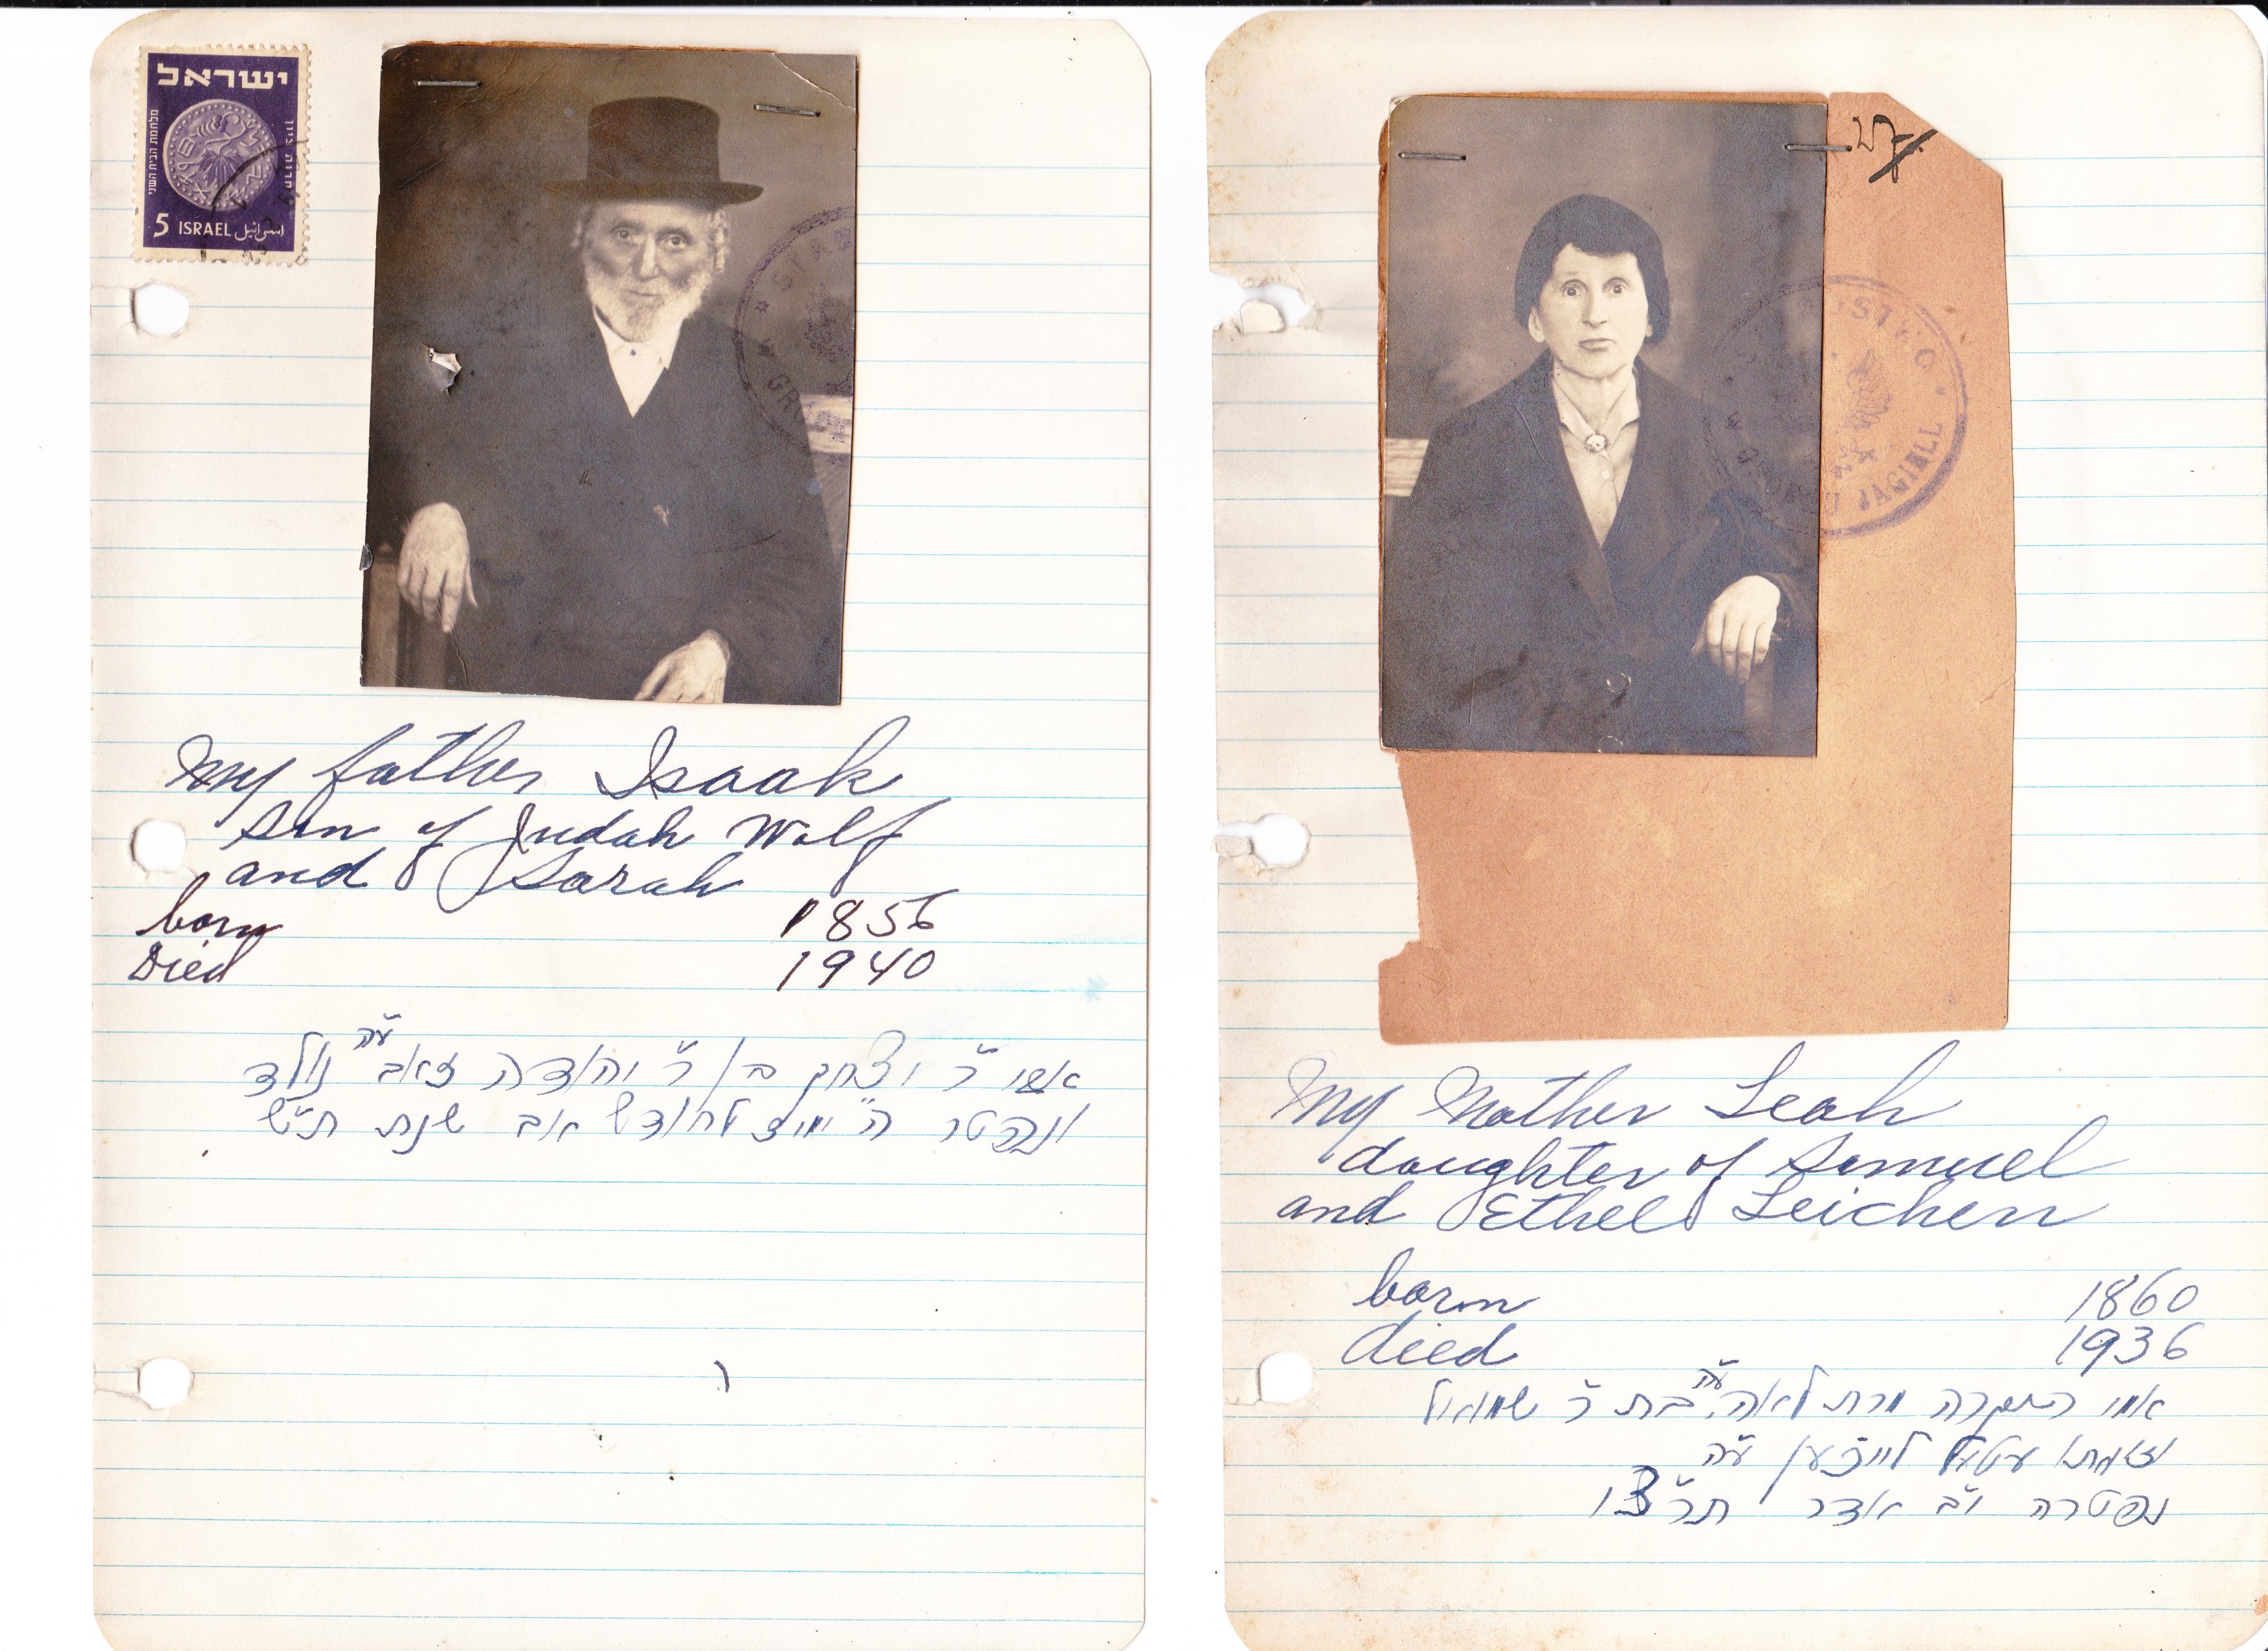 ישראל
מלחמת הבית השני
5 ISRAEL اسرائيل
My father Isaak
son of Judah Wolf
and Sarah
born 1856
Died 1940
אבי ר' יצחק בן ר' יהודה זאב ע"ה נולד
ונפטר ה' ימים לחודש אב שנת ת"ש
JAGIELL
My Mother Leah
daughter of Samuel
and Ethel Leichen
born 1860
died 1936
אמי היקרה מרת לאה ע"ה בת ר' שמואל
עטעל לייכען ע"ה
נפטרה י"ב אדר תרצ"ו